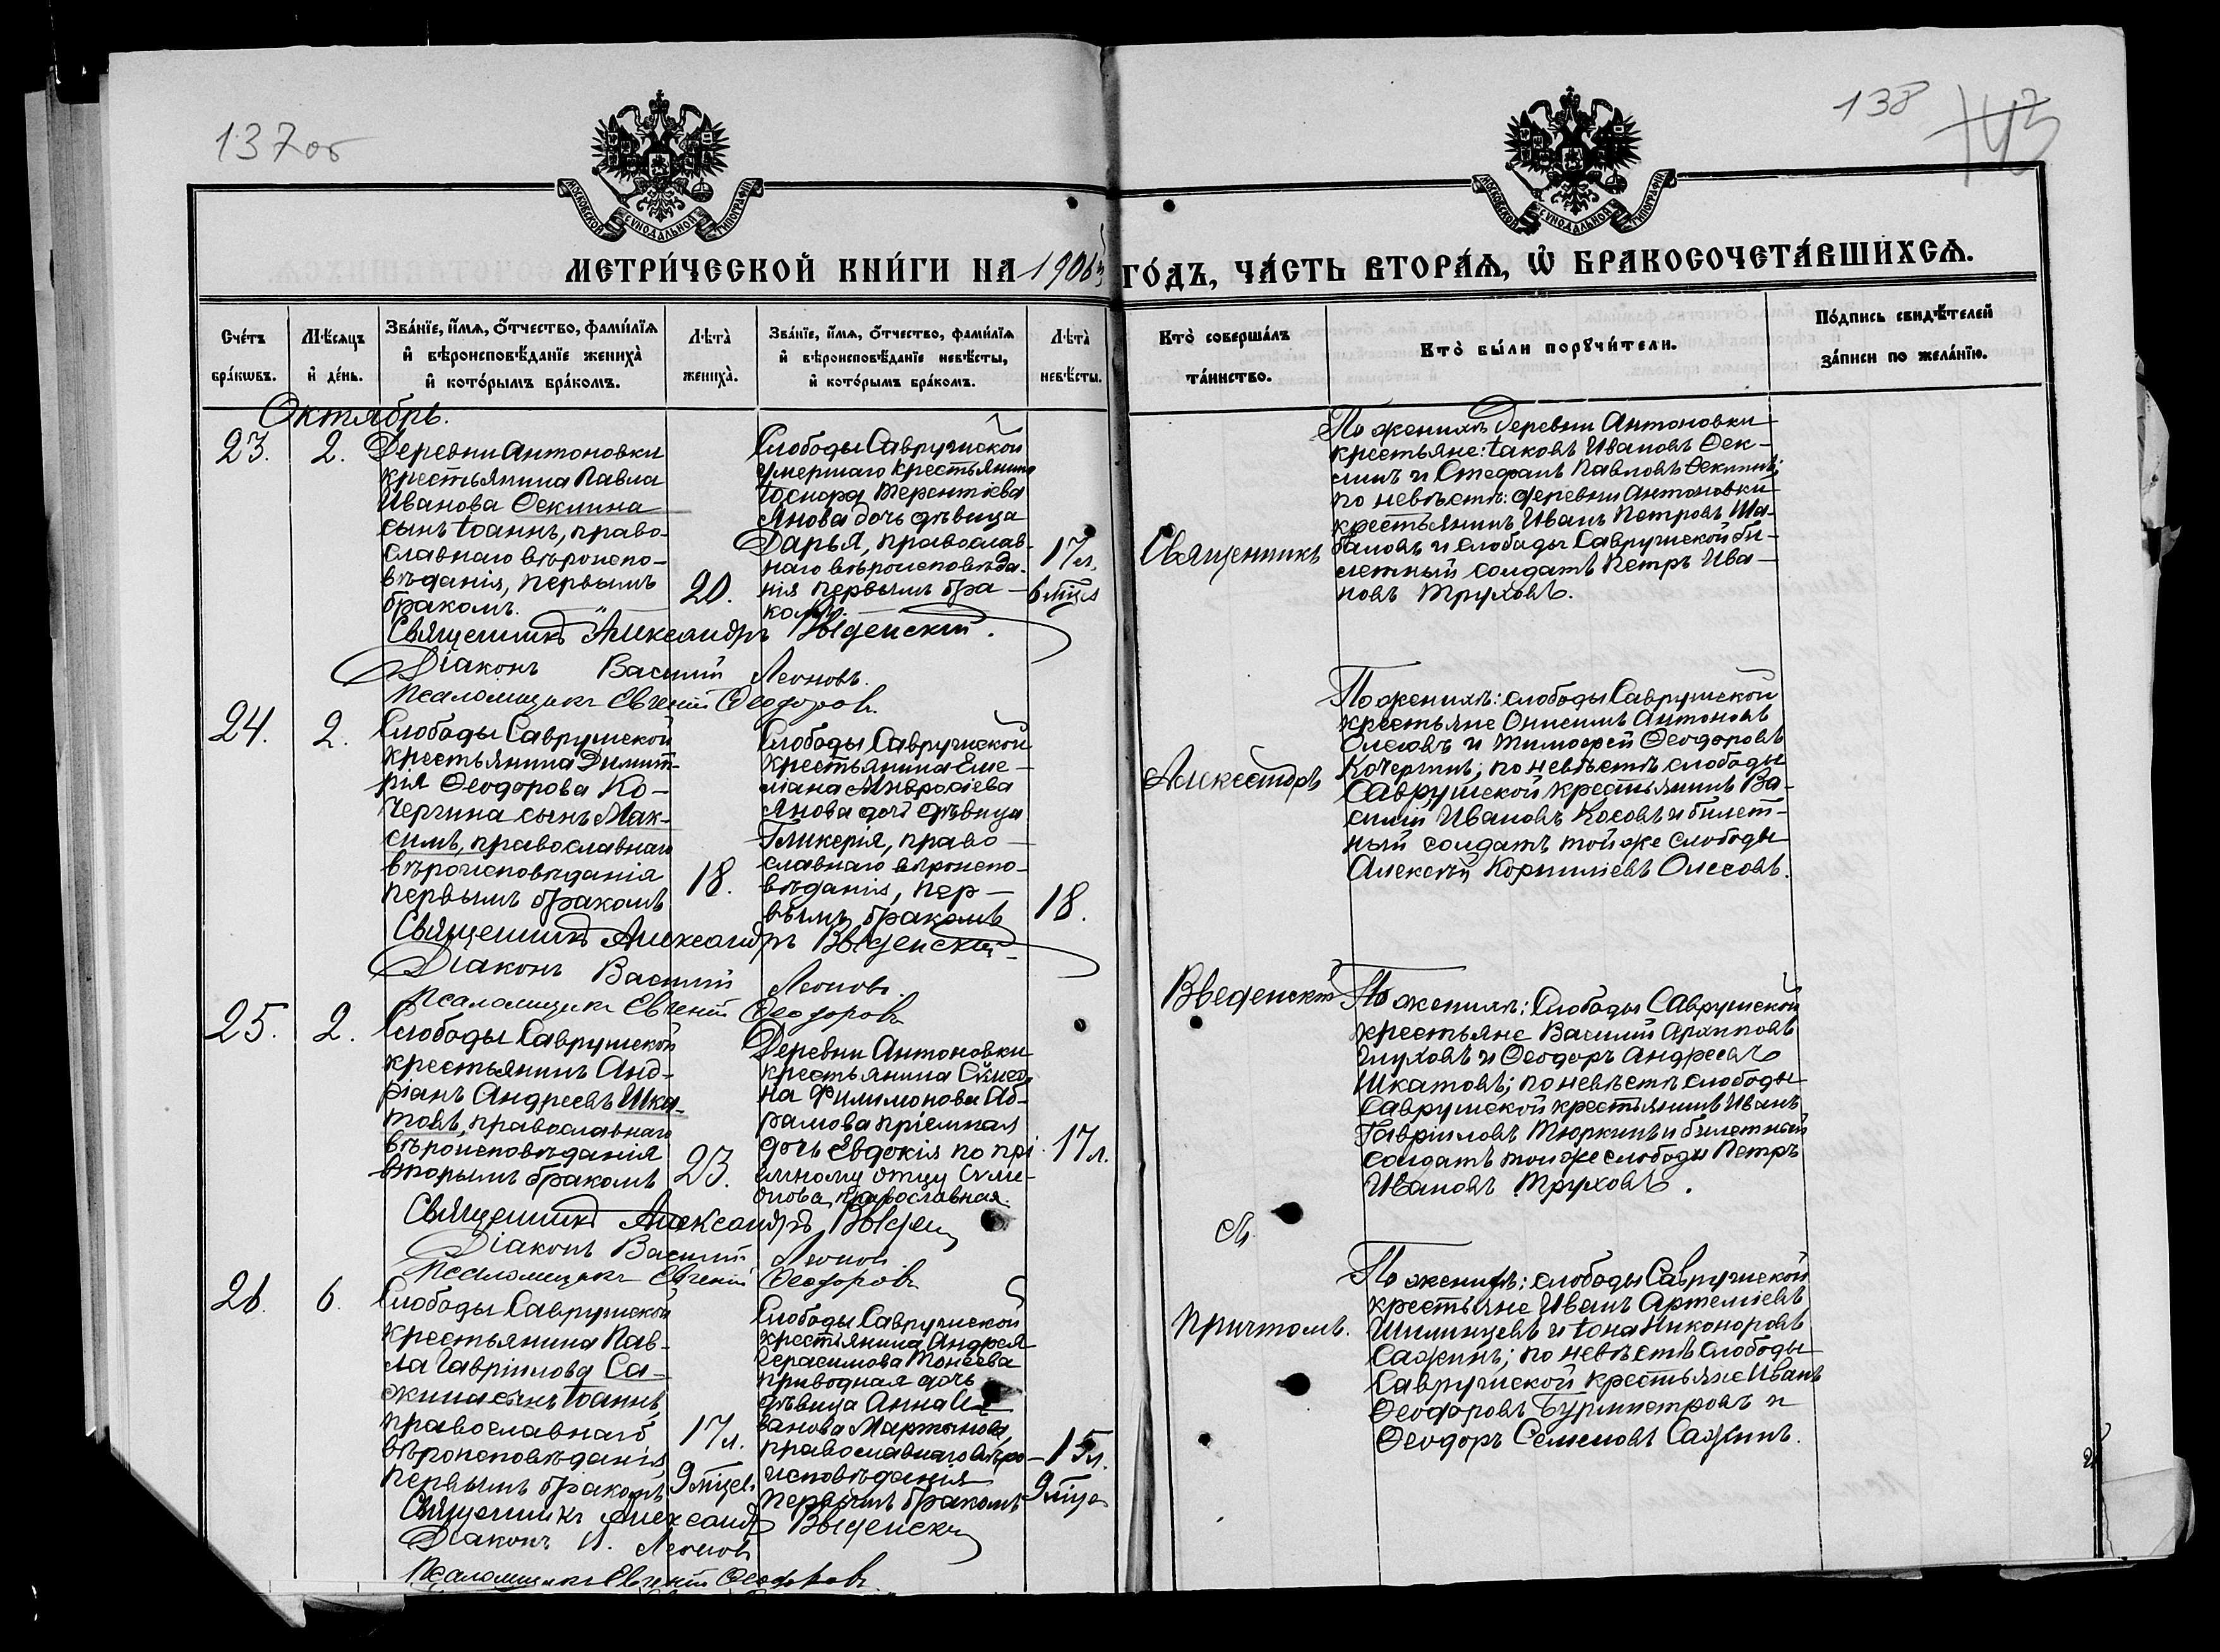 137об
138
143
МОСКОВСКОЙ СѴНОДАЛЬНОЙ ТИПОГРАФІИ
МОСКОВСКОЙ СѴНОДАЛЬНОЙ ТИПОГРАФІИ
МЕТРИ́ЧЕСКОЙ КНИ́ГИ НА 1906й ГО́ДЪ, ЧА́СТЬ ВТОРА́Ѧ, Ѽ БРАКОСОЧЕТА́ВШИХСѦ.
Сче́тъ
бра́кωвъ.
Мѣ́сяцъ
и҆ де́нь.
Зва́нїе, и҆́мѧ, ѻ҆́тчество, фами́лїѧ
и҆ вѣроисповѣ́данїе жениха̀
и҆ кото́рымъ бра́комъ.
Лѣ́та̀
жениха̀.
Зва́нїе, и҆́мѧ, ѻ҆́тчество, фами́лїѧ
и҆ вѣроисповѣ́данїе невѣ́сты,
и҆ кото́рымъ бра́комъ.
Лѣ́та̀
невѣ́сты.
Кто̀ соверша́лъ
та́инство.
Кто̀ бы́ли порꙋчи́тели.
По́дпись свидѣ́телей
за́писи по жела́нїю.
Октябрь.
23.
2.
Деревни Антоновки
крестьянина Павла
Иванова Феклина
сынъ Іоаннъ, право-
славнаго вѣроиспо-
вѣданія, первымъ
бракомъ.
20.
Слободы Саврушской
умершаго крестьянина
Терентіева
Янова дочь дѣвица
Дарья, православ-
наго вѣроисповѣда-
нія первымъ бра-
комъ.
17 л.
6 мѣс.
Священникъ
По женихѣ деревни Антоновки
крестьяне: Іаковъ Ивановъ Фек-
линъ и Стефанъ Павловъ Феклинъ;
по невѣстѣ: деревни Антоновки
крестьянинъ Иванъ Петровъ Ша-
баловъ и слободы Саврушской би-
летный солдатъ Петръ Ива-
новъ Труховъ.
Священникъ Александръ Введенскій.
Діаконъ Василій Леоновъ.
Псаломщикъ Евгеній Ѳеодоровъ.
24.
2.
Слободы Саврушской
крестьянина Димит-
рія Ѳеодорова Ко-
чергина сынъ Мак-
симъ, православнаго
вѣроисповѣданія
первымъ бракомъ
18.
Слободы Саврушской
крестьянина Еме-
ліана Амвросіева
Янова дочь дѣвица
Гликерія, право-
славнаго вѣроиспо-
вѣданія, пер-
вымъ бракомъ
18.
Александръ
По женихѣ: слободы Саврушской
крестьяне Онисимъ Антоновъ
Олесовъ и Тимофей Ѳеодоровъ
Кочергинъ; по невѣстѣ слободы
Саврушской крестьянинъ Ва-
силій Ивановъ Косовъ и билет-
ный солдатъ той же слободы
Алексѣй Корниліевъ Олесовъ.
Священникъ Александръ Введенскій
Діаконъ Василій Леоновъ.
Псаломщикъ Евгеній Ѳеодоровъ
25.
2.
Слободы Саврушской
крестьянинъ Анд-
ріанъ Андреевъ Шка-
товъ, православнаго
вѣроисповѣданія
вторымъ бракомъ
23.
Деревни Антоновки
крестьянина Симео-
на Филимонова Аб-
рамова пріемная
дочь Евдокія по прі-
емному отцу Симе-
онова, православная.
17 л.
Введенскій
По женихѣ: Слободы Саврушской
крестьяне Василій Архиповъ
Глуховъ и Ѳеодоръ Андреевъ
Шкатовъ; по невѣстѣ слободы
Саврушской крестьянинъ Иванъ
Гавріиловъ Тюркинъ и билетный
солдатъ той же слободы Петръ
Ивановъ Труховъ.
Священникъ Александръ Введен
Діаконъ Василій Леонов
Псаломщикъ Евгеній Ѳеодоровъ
съ
26.
6.
Слободы Саврушской
крестьянина Пав-
ла Гавріилова Са-
жина сынъ Іоаннъ,
православнаго
вѣроисповѣданія
первымъ бракомъ
17 л.
9 мѣцев.
Слободы Саврушской
крестьянина Андрея
Герасимова Монеева
приводная дочь
дѣвица Анна И-
ванова Мартынова,
православнаго вѣро-
исповѣданія
первымъ бракомъ
15 л.
9 мѣце
причтомъ.
По женихѣ: слободы Саврушской
крестьяне Иванъ Артеміевъ
Шилинцевъ и Іона Никоноровъ
Сажинъ; по невѣстѣ слободы
Саврушской крестьяне Иванъ
Ѳеодоровъ Бурмистровъ и
Ѳеодоръ Семеновъ Сажинъ.
Священникъ Александр Введенскій
Діаконъ В. Леоновъ
Псаломщикъ Евгеній Ѳеодоровъ